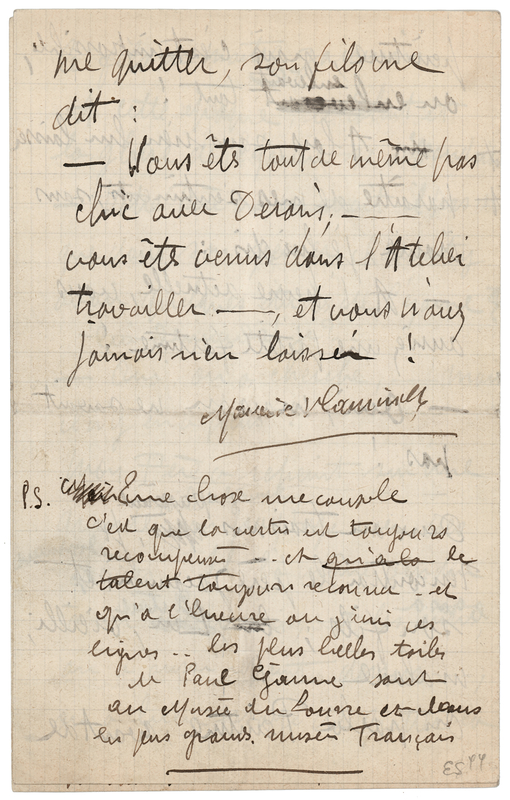 "me quitter, son fils me
dit :
— Vous êtes tout de même pas
chic avec Derain, ——
vous êtes venus dans l'Atelier
travailler ——, et vous n'avez
jamais rien laissé !
Maurice Vlaminck
P.S. Une chose me console
c'est que la vertu est toujours
recompensée .. et qu'a la le
talent toujours reconnu. et
qu'à l'heure où j'écris ces
lignes .. les plus belles toiles
de Paul Cézanne sont
au Musée du Louvre et dans
les plus grands musées Français